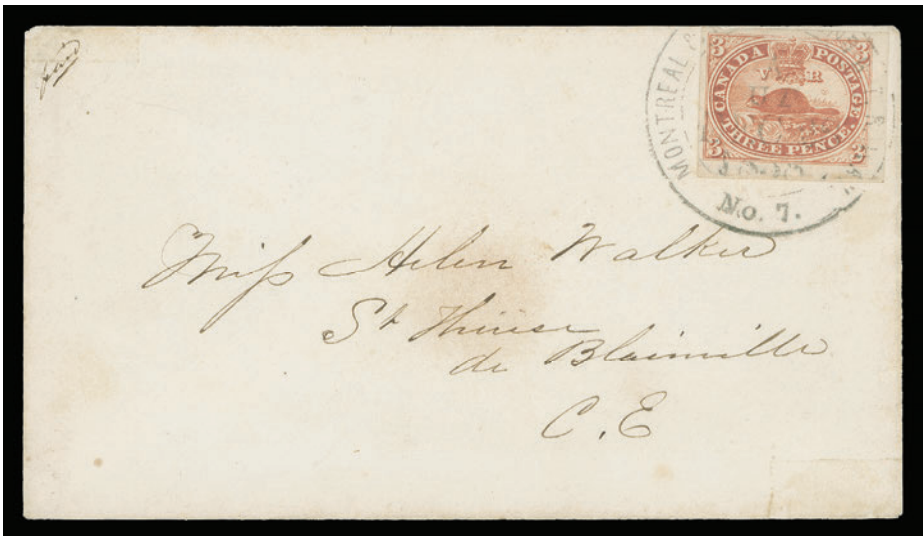 MONTREAL &
3 3
CANADA POSTAGE
V R
THREE PENCE.
3 3
No. 7.
Miss Helen Walker
St Thérèse
de Blainville
C. E